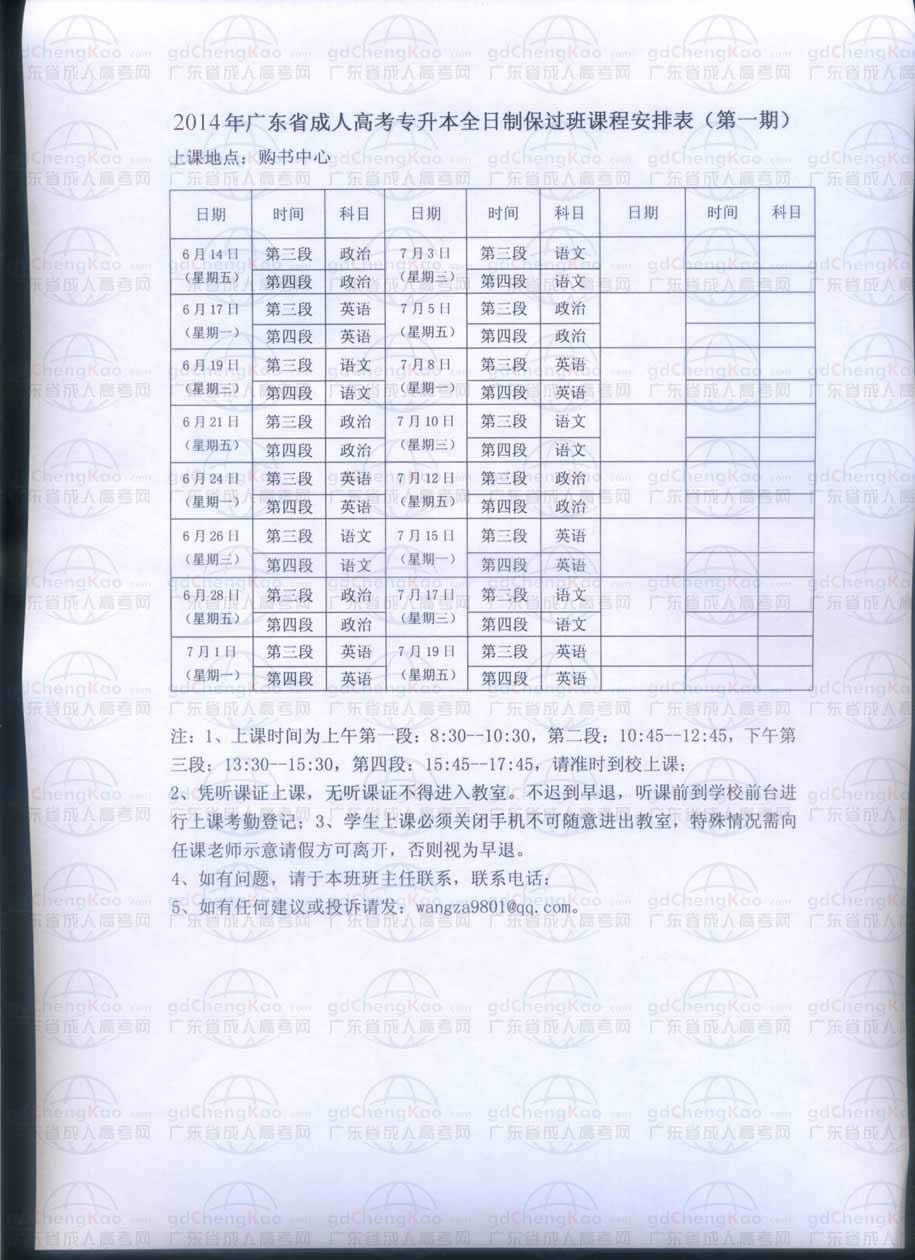 2014年广东省成人高考专升本全日制保过班课程安排表（第一期）
上课地点：购书中心
日期 时间 科目 日期 时间 科目 日期 时间 科目
6月14日 第三段 政治 7月3日 第三段 语文
（星期五） 第四段 政治 （星期三） 第四段 语文
6月17日 第三段 英语 7月5日 第三段 政治
（星期一） 第四段 英语 （星期五） 第四段 政治
6月19日 第三段 语文 7月8日 第三段 英语
（星期三） 第四段 语文 （星期一） 第四段 英语
6月21日 第三段 政治 7月10日 第三段 语文
（星期五） 第四段 政治 （星期三） 第四段 语文
6月24日 第三段 英语 7月12日 第三段 政治
（星期一） 第四段 英语 （星期五） 第四段 政治
6月26日 第三段 语文 7月15日 第三段 英语
（星期三） 第四段 语文 （星期一） 第四段 英语
6月28日 第三段 政治 7月17日 第三段 语文
（星期五） 第四段 政治 （星期三） 第四段 语文
7月1日 第三段 英语 7月19日 第三段 英语
（星期一） 第四段 英语 （星期五） 第四段 英语
注：1、上课时间为上午第一段：8:30--10:30，第二段：10:45--12:45，下午第
三段；13:30--15:30，第四段：15:45--17:45，请准时到校上课；
2、凭听课证上课，无听课证不得进入教室。不迟到早退，听课前到学校前台进
行上课考勤登记；3、学生上课必须关闭手机不可随意进出教室，特殊情况需向
任课老师示意请假方可离开，否则视为早退。
4、如有问题，请于本班班主任联系，联系电话：
5、如有任何建议或投诉请发：wangza9801@qq.com。
gdChengKao.com
广东省成人高考网